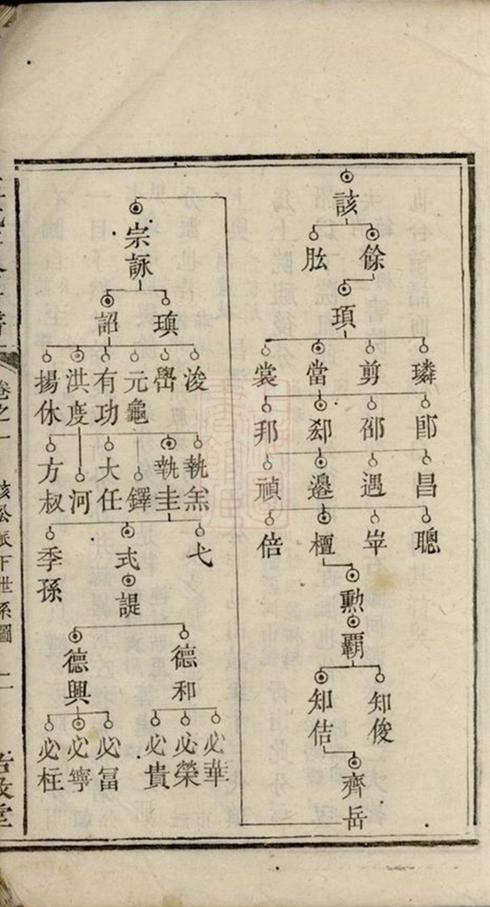 該
餘 肱
頊
璘 剪 當 裳
郎 邵 郄 邦
昌 遇 邊 禎
聰 崋 檀 倍
勲
覇
知俊 知佶
齊岳
宗詠
瑱 詔
浚 嚳 元龜 有功 洪度 揚休
執羔 執圭 鐸 大任 河 方叔
弋 式 季孫
諟
德和 德興
必華 必榮 必貴 必富 必寧 必枉
卷之一 該公派下世系圖 二